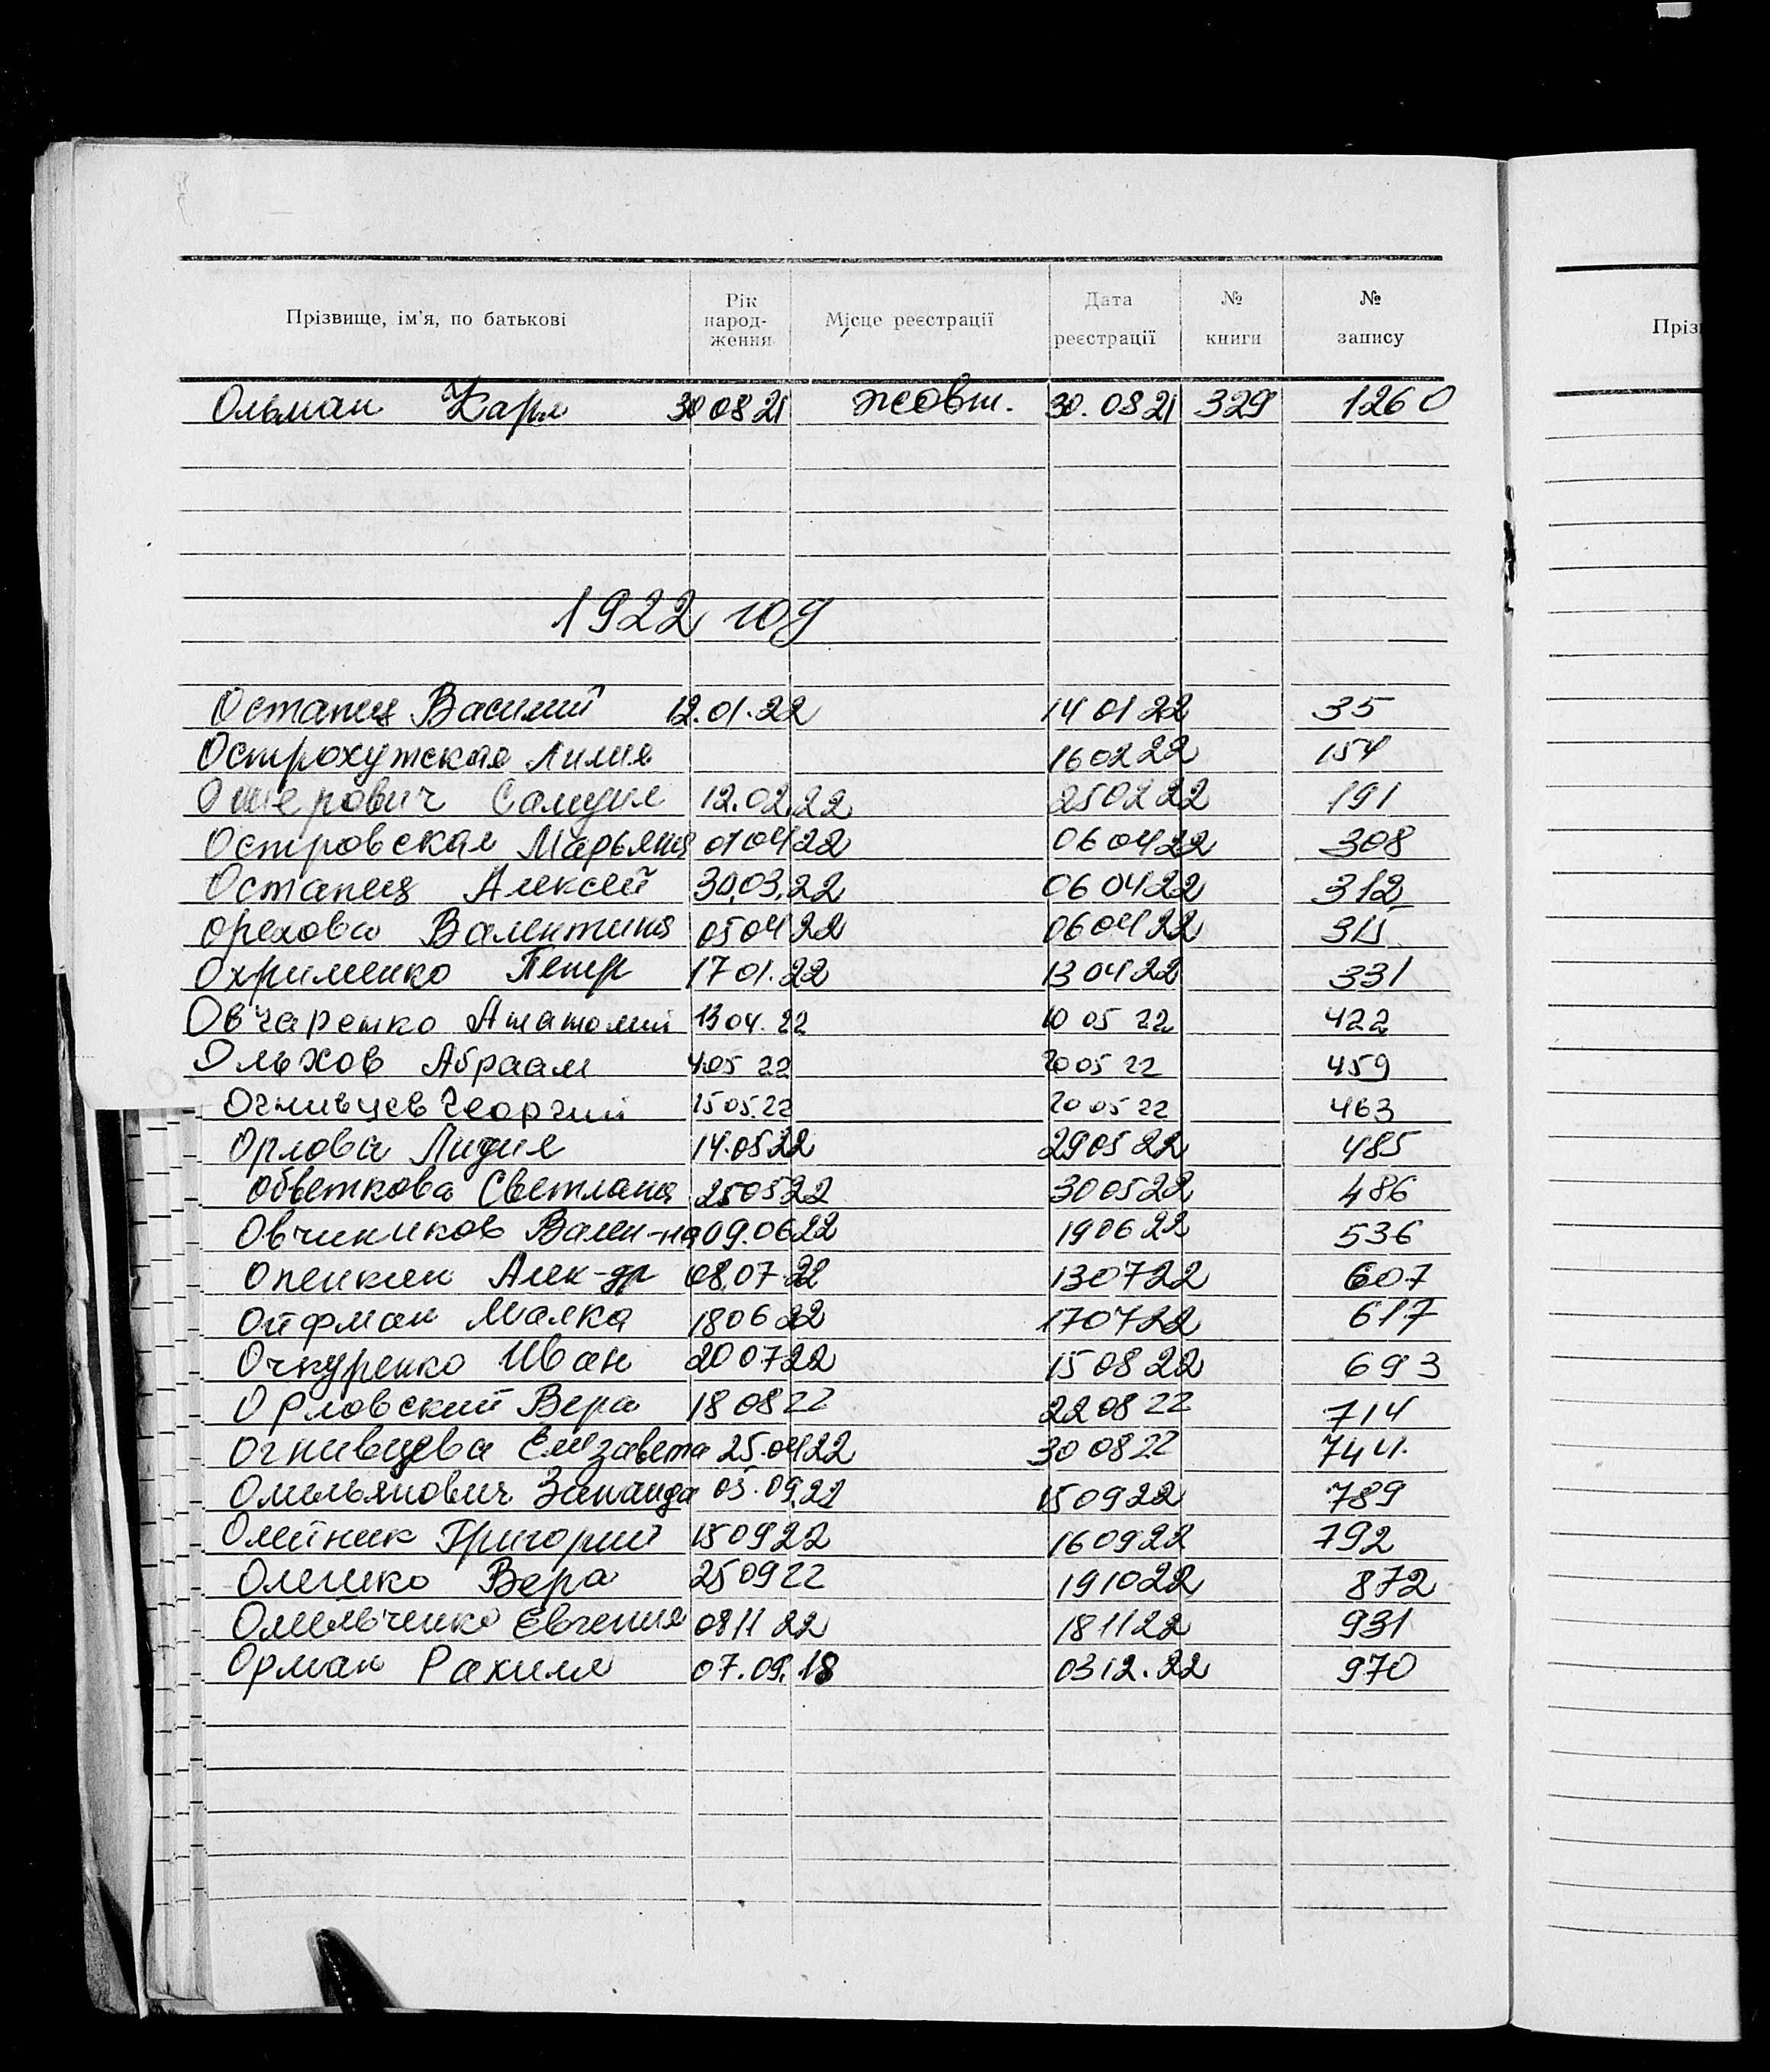 Прізвище, ім'я, по батькові Рік народ- ження Місце реєстрації Дата реєстрації № книги № запису
Пріз
Ольман Карл 30 08 21 жовт. 30. 08 21 329 1260
1922 год
Остапец Василий 12.01.22 14 01 22 35
Острохутская Лилия 16 02 22 154
Ошерович Самуил 12.02.22 25 02 22 191
Островская Марьяна 01 04 22 06 04 22 308
Остапец Алексей 30.03.22 06 04 22 312
Орехова Валентина 05 04 22 06 04 22
Охрименко Петр 17 01.22 13 04 22 331
Овчаренко Анатолий 13 04. 22 10 05 22 422
Ольхов Абраам 4.05 22 20 05 22 459
Огнивцев Георгий 15 05.22 20 05 22 463
Орлова Лидия 14.05 22 29 05 22 485
Обветкова Светлана 25 05 22 30 05 22 486
Овчиников Вален-на 09.06 22 19 06 22 536
Опенкин Алек-др 08.07.22 13 07 22 607
Ойфман Малка 18 06 22 17 07 22 617
Очкуренко Иван 20 07 22 15 08 22 693
Орловский Вера 18 08 22 22 08 22 714
Огнивцева Елизавета 25.04 22 30 08 22 744.
Омельянович Зинаида 05.09.22 15 09 22 789
Олейник Григорий 15 09 22 16 09 22 792
Олешко Вера 25 09 22 19 10 22 872
Омельченко Евгения 08 11 22 18 11 22 931
Орман Рахиля 07.09.18 03 12.22 970